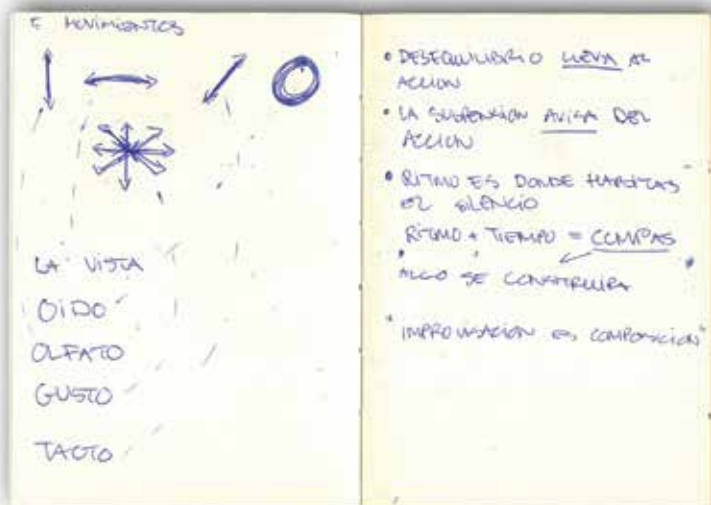 5 MOVIMIENTOS
LA VISTA
OIDO
OLFATO
GUSTO
TACTO
• DESEQUILIBRIO LLEVA AL
ACCION
• LA SUSPENSION AVISA DEL
ACCION
• RITMO ES DONDE HABITAS
EL SILENCIO
RITMO + TIEMPO = COMPAS
ALGO SE CONSTRUIRA
"IMPROVISACION ES COMPOSICION"